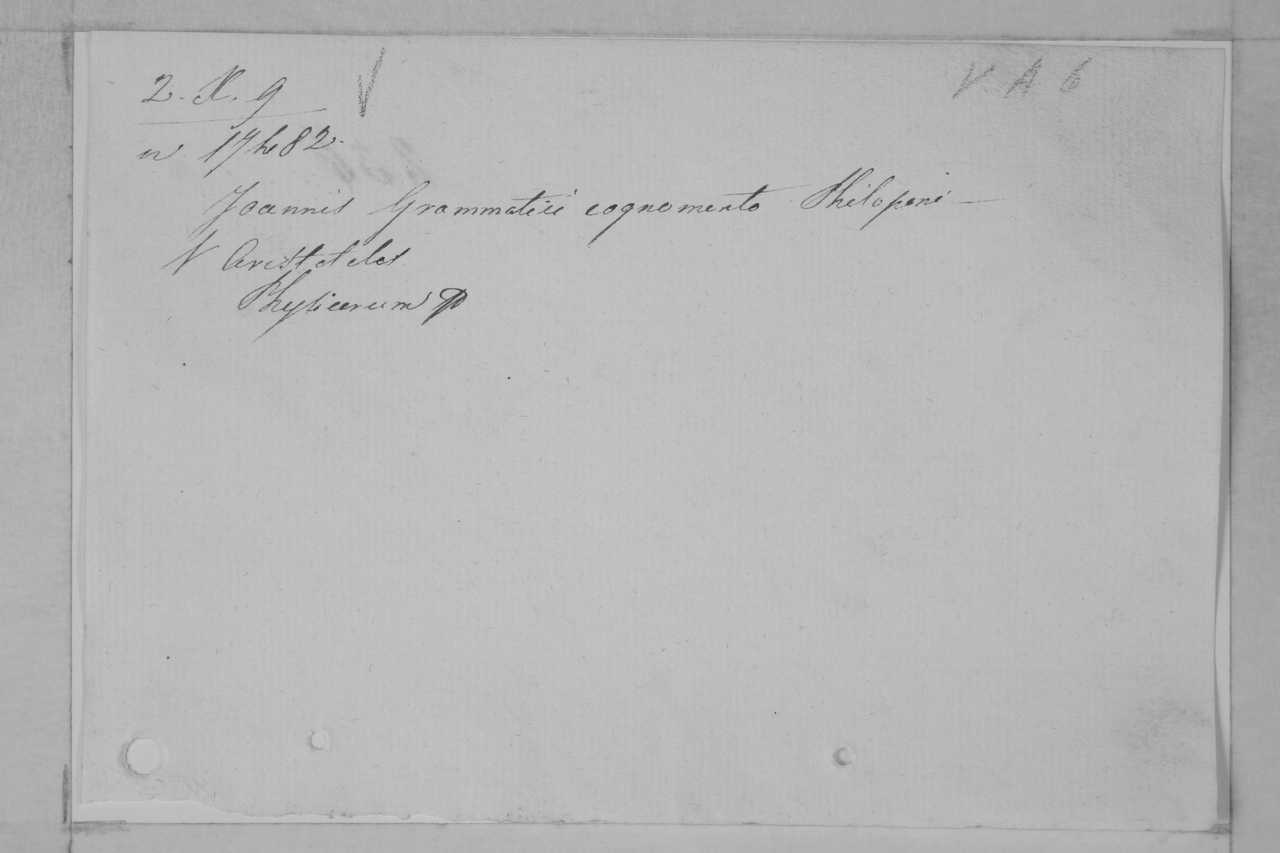 2. X. 9
V A 6
Joannis Grammatici cognomento Philoponi —
V Aristoteles
Physicorum